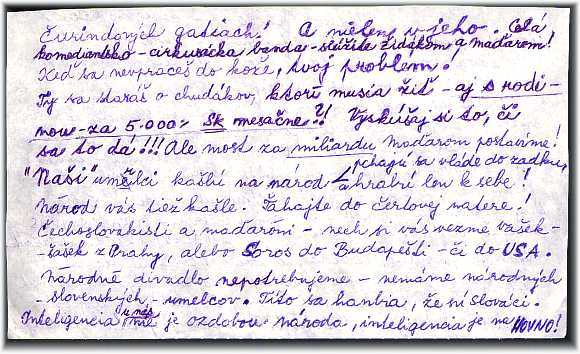 Čurindových gatiach! A nielen v jeho. Celá
komediantsko-cirkusácka banda-slúžite židákom a maďarom!
Keď sa nevpraceš do kože, tvoj problem!
Ty sa staráš o chudákov, ktorí musia žiť - aj s rodi-
nou - za 5.000,- Sk mesačne?! Vyskúšaj si to, či
sa to dá!!! Ale most za miliardu maďarom postavíme!
pchajú sa vláde do zadku,
"Naši" umelci kašlú na národ a hrabú len k sebe!
Národ vás tiež kašle. Ťahajte do čertovej matere!
Čechoslovakisti a maďaróni - nech si vás vezme vašek-
-šašek z Prahy, alebo Soros do Budapešti - či do USA.
Národné divadlo nepotrebujeme - nemáme národných
-slovenských - umelcov. Títo sa hanbia, že sú slováci.
Inteligencia u nás nie je ozdobou národa, inteligencia je ne HOVNO!